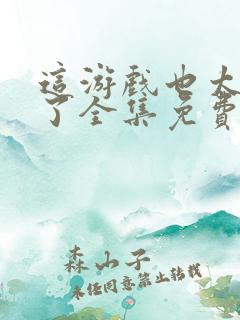 這游戲也太
了全集免費
森山子
未经同意禁止转载